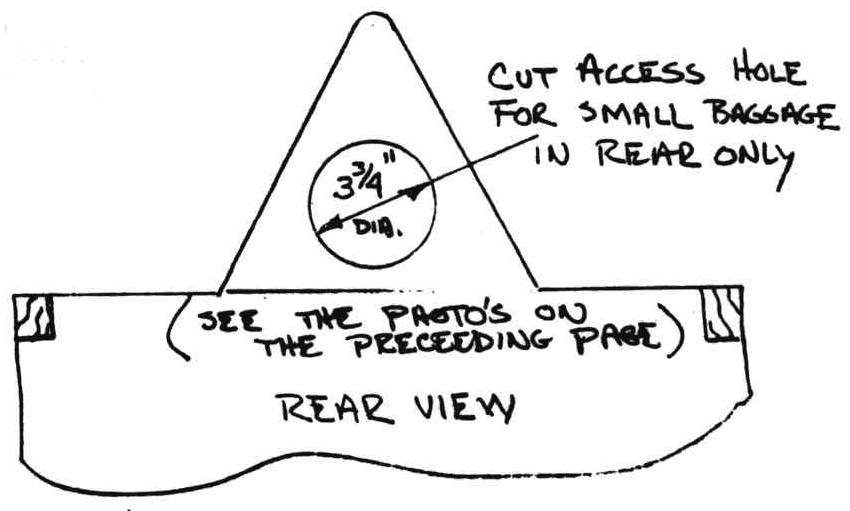 CUT ACCESS HOLE
FOR SMALL BAGGAGE
IN REAR ONLY
3 3/4"
DIA.
(SEE THE PHOTO'S ON
THE PRECEEDING PAGE)
REAR VIEW